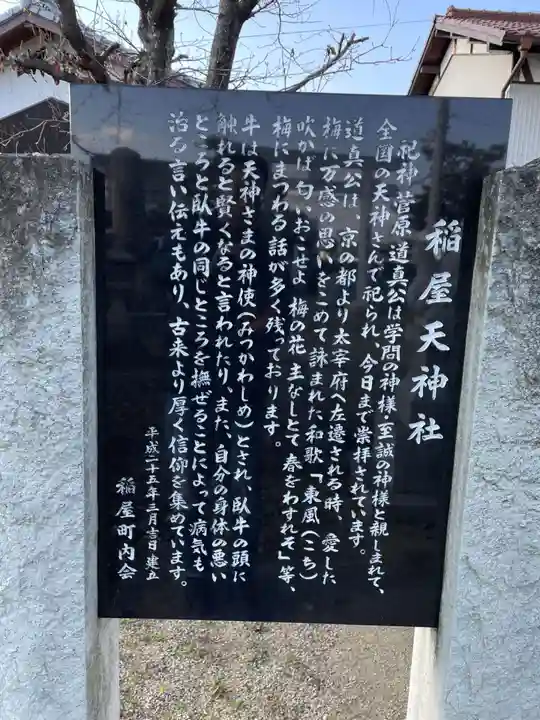 稲屋天神社
祀神菅原道真公は学問の神様・至誠の神様と親しまれて、
全国の天神さんで祀られ、今日まで崇拝されています。
道真公は、京の都より太宰府へ左遷される時、愛した
梅に万感の思いをこめて詠まれた和歌「東風(こち)
吹かば匂いおこせよ 梅の花 主なしとて 春をわすれそ」等、
梅にまつわる話が多く残っております。
牛は天神さまの神使(みつかわしめ)とされ、臥牛の頭に
触れると賢くなると言われたり、また、自分の身体の悪い
ところと臥牛の同じところを撫ぜることによって病気も
治る言い伝えもあり、古来より厚く信仰を集めています。
平成二十五年三月吉日建立
稲屋町内会